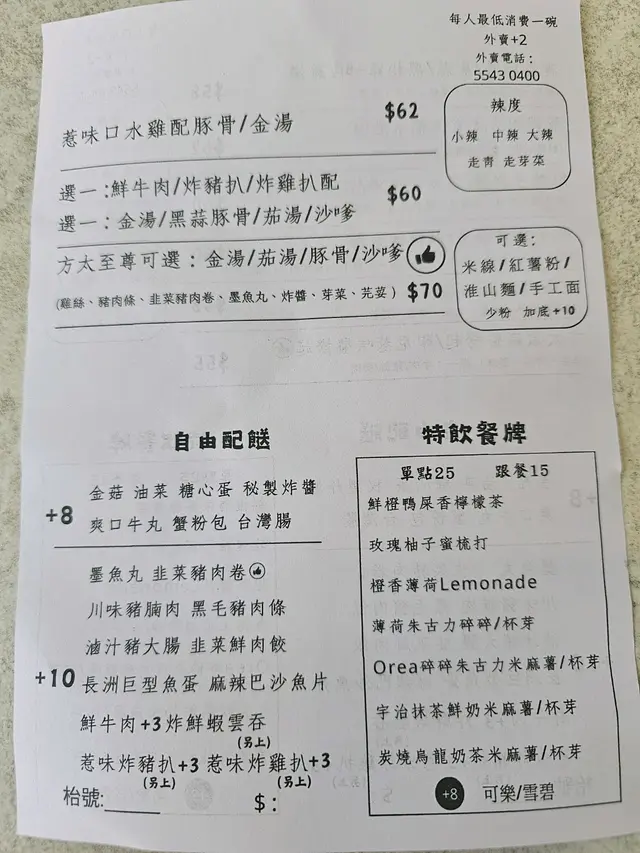 每人最低消費一碗
外賣+2
外賣電話：
5543 0400
惹味口水雞配豚骨/金湯 $62
辣度
小辣 中辣 大辣
走青 走芽菜
選一：鮮牛肉/炸豬扒/炸雞扒配
選一：金湯/黑蒜豚骨/茄湯/沙嗲
$60
方太至尊可選：金湯/茄湯/豚骨/沙嗲
(雞絲、豬肉條、韭菜豬肉卷、墨魚丸、炸醬、芽菜、芫荽) $70
可選：
米線/紅薯粉/
淮山麵/手工面
少粉 加底+10
自由配餸
+8
金菇 油菜 糖心蛋 秘製炸醬
爽口牛丸 蟹粉包 台灣腸
+10
墨魚丸 韭菜豬肉卷
川味豬腩肉 黑毛豬肉條
滷汁豬大腸 韭菜鮮肉餃
長洲巨型魚蛋 麻辣巴沙魚片
鮮牛肉+3 炸鮮蝦雲吞
(另上)
惹味炸豬扒+3 惹味炸雞扒+3
(另上) (另上)
枱號：
$：
特飲餐牌
單點25 跟餐15
鮮橙鴨屎香檸檬茶
玫瑰柚子蜜梳打
橙香薄荷Lemonade
薄荷朱古力碎碎/杯芽
Orea碎碎朱古力米麻薯/杯芽
宇治抹茶鮮奶米麻薯/杯芽
炭燒烏龍奶茶米麻薯/杯芽
+8 可樂/雪碧